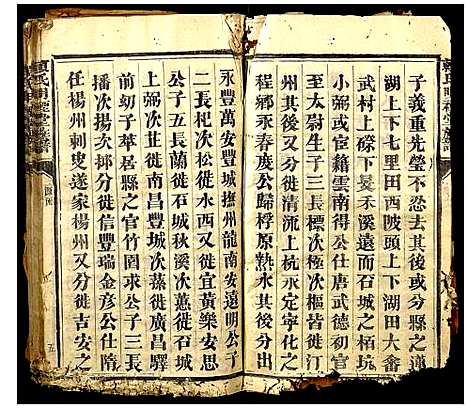 子義重光瑩不忍去其後或分縣之蓮
湖上下七里田西陂頭上下湖田大畬
武村上磜下旻禾溪遠而石城之栢坑
小彌或宦籍雲南得公仕唐武德初官
至太尉生子三長標次極次樞皆徙汀
程鄉又分徙清流上杭永定寧化之
永春度公歸桴原熱水其後分出
永豐萬安豐城撫州龍南安遠明公子
二長杞次松徙水西又徙宜黃樂安思
公子五次蘭徙石城秋溪次蕙徙石城
上弼次苙徙南昌豐城次蕩徙廣昌驛
前幼子苹居縣之官竹園求公子三長
播次揚次㧕分徙信豐瑞金彥公仕隋
任楊州刺史遂家楊州又分徙吉安之